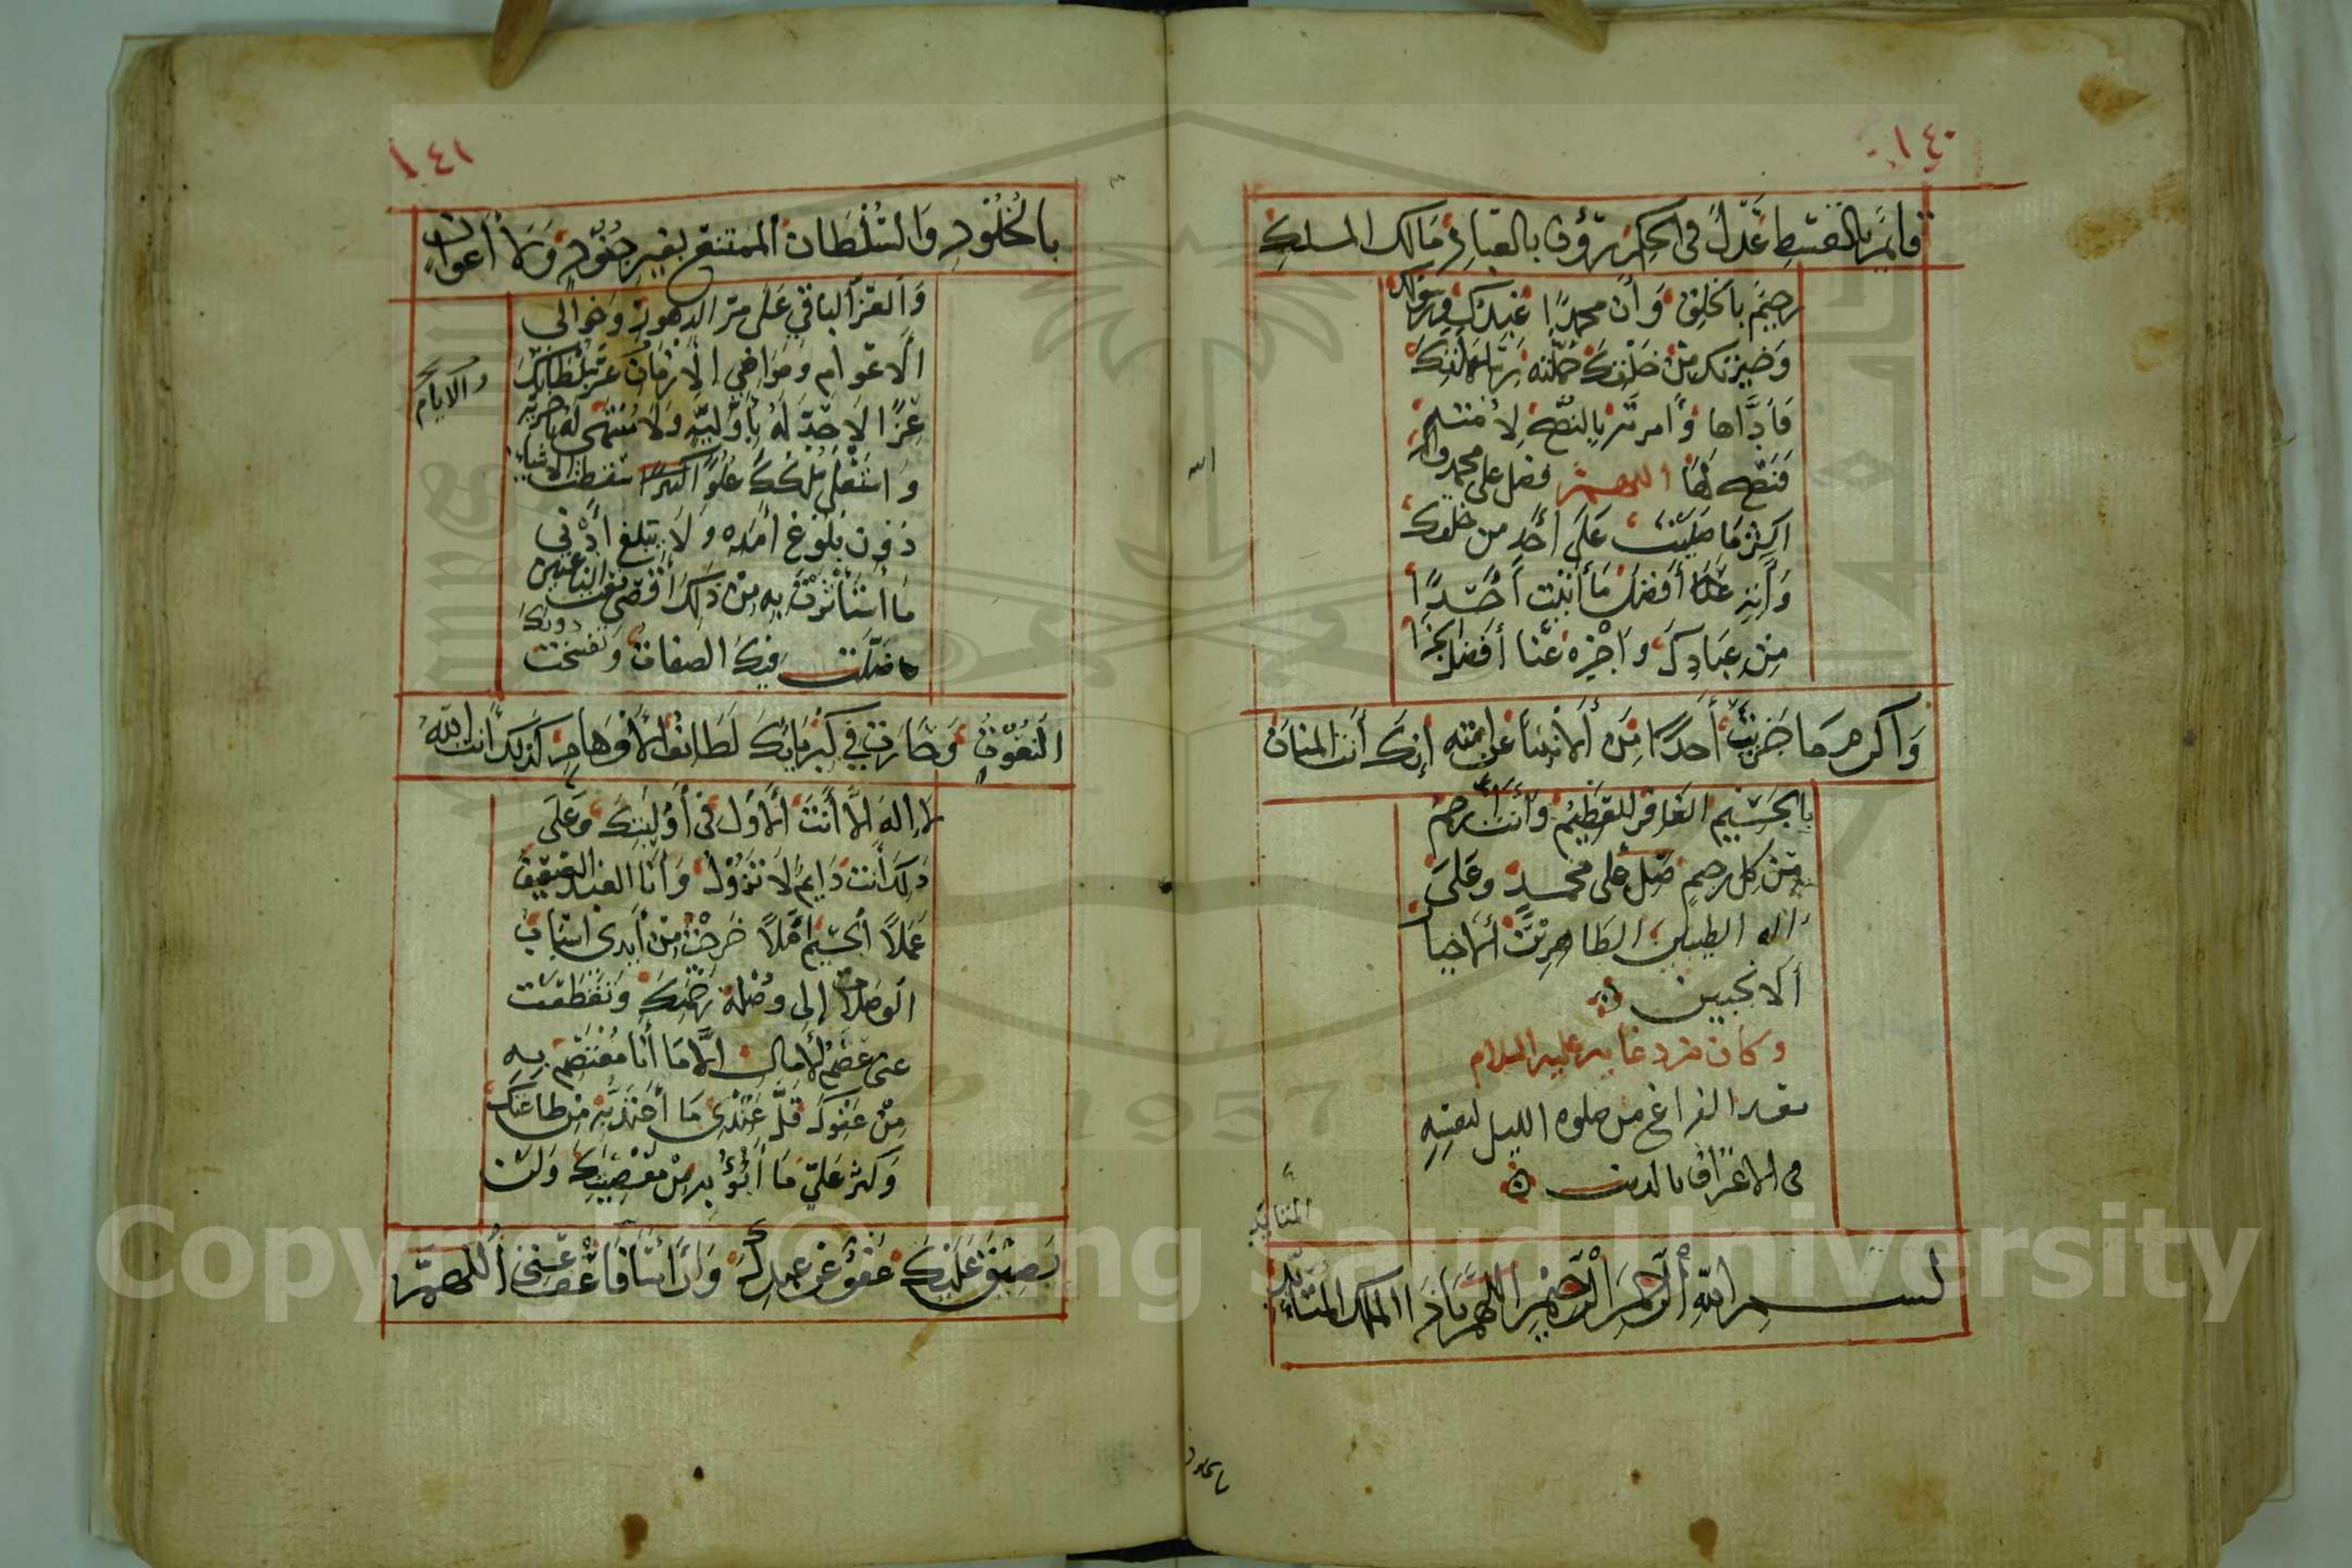 ١٤٠
قائم بالقسط عدل في الحكم رؤوف بالعباد مالك الملك
رحيم بالخلق وأن محمدا عبدك ورسولك
وخيرتك من خلقك حملته رسالتك
فأداها وأمرته بالنصح لأمته
فنصح لها اللهم فصل على محمد واله
اكثر ما صليت على أحد من خلقك
وآته عنا أفضل ما آتيت أحدا
من عبادك واجزه عنا أفضل
وأكرم ما جزيت أحدا من أنبيائك عن أمته إنك أنت المنان
بالجسيم الغافر للعظيم وأنت أرحم
من كل رحيم صل على محمد وعلى
اله الطيبين الطاهرين الاخيار
الانجبين
وكان من دعائه عليه السلام
بعد الفراغ من صلوه الليل لنفسه
في الاعتراف بالذنب
بسم الله الرحمن الرحيم اللهم يا ذا الملك المتأبد
بالخلود
١٤١
بالخلود والسلطان الممتنع بغير جنود ولا أعوان
والعز الباقي على مر الدهور وخوالي
الاعوام ومواضي الازمان عز سلطانك
والايام
عزا لا حد له بأولية ولا منتهى له بآخرية
واستعلى ملكك علوا سقطت الاشياء
دون بلوغ أمده ولا يبلغ أدنى
ما استأثرت به من ذلك أقصى نعت الناعتين
ضلت فيك الصفات وتفسخت دونك
النعوت وحارت في كبريائك لطائف الأوهام كذلك أنت الله
لا إله إلا أنت الأول في أوليتك وعلى
ذلك أنت دائم لا تزول وأنا العبد الضعيف
عملا الجسيم أملا خرجت من يدي اسباب
الوصلات إلى وصلة رحمتك وتقطعت
عني عصم الأمال إلا ما أنا معتصم به
من عفوك قل عندي ما أعتد به من طاعتك
وكثر علي ما أبوء به من معصيتك ولن
يضيق عليك عفو عن عبدك وإن أساء فاعف عني اللهم
Copyright © King Saud University
1957